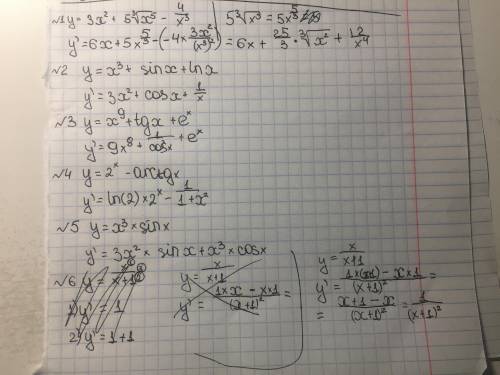 №1 y = 3x² + 5∛x⁵ - 4/x³
5∛x³ = 5x^(5/3)
y' = 6x + 5x^(5/3) - (-4 × 3x²/(x³)²) = 6x + 25/3 · ∛x² + 12/x⁴
№2 y = x³ + sinx + lnx
y' = 3x² + cosx + 1/x
№3 y = x⁹ + tgx + eˣ
y' = 9x⁸ + 1/cos²x + eˣ
№4 y = 2ˣ - arctgx
y' = ln(2) × 2ˣ - 1/(1+x²)
№5 y = x³ × sinx
y' = 3x² × sinx + x³ × cosx
№6 y = x/(x+1)
1) y' = 1
2) y' = 1+1
y = x/(x+1)
y' = (1×x - x×1)/(x+1)² =
y = x/(x+1)
y' = (1×(x+1) - x×1)/(x+1)² =
= (x+1-x)/(x+1)² = 1/(x+1)²